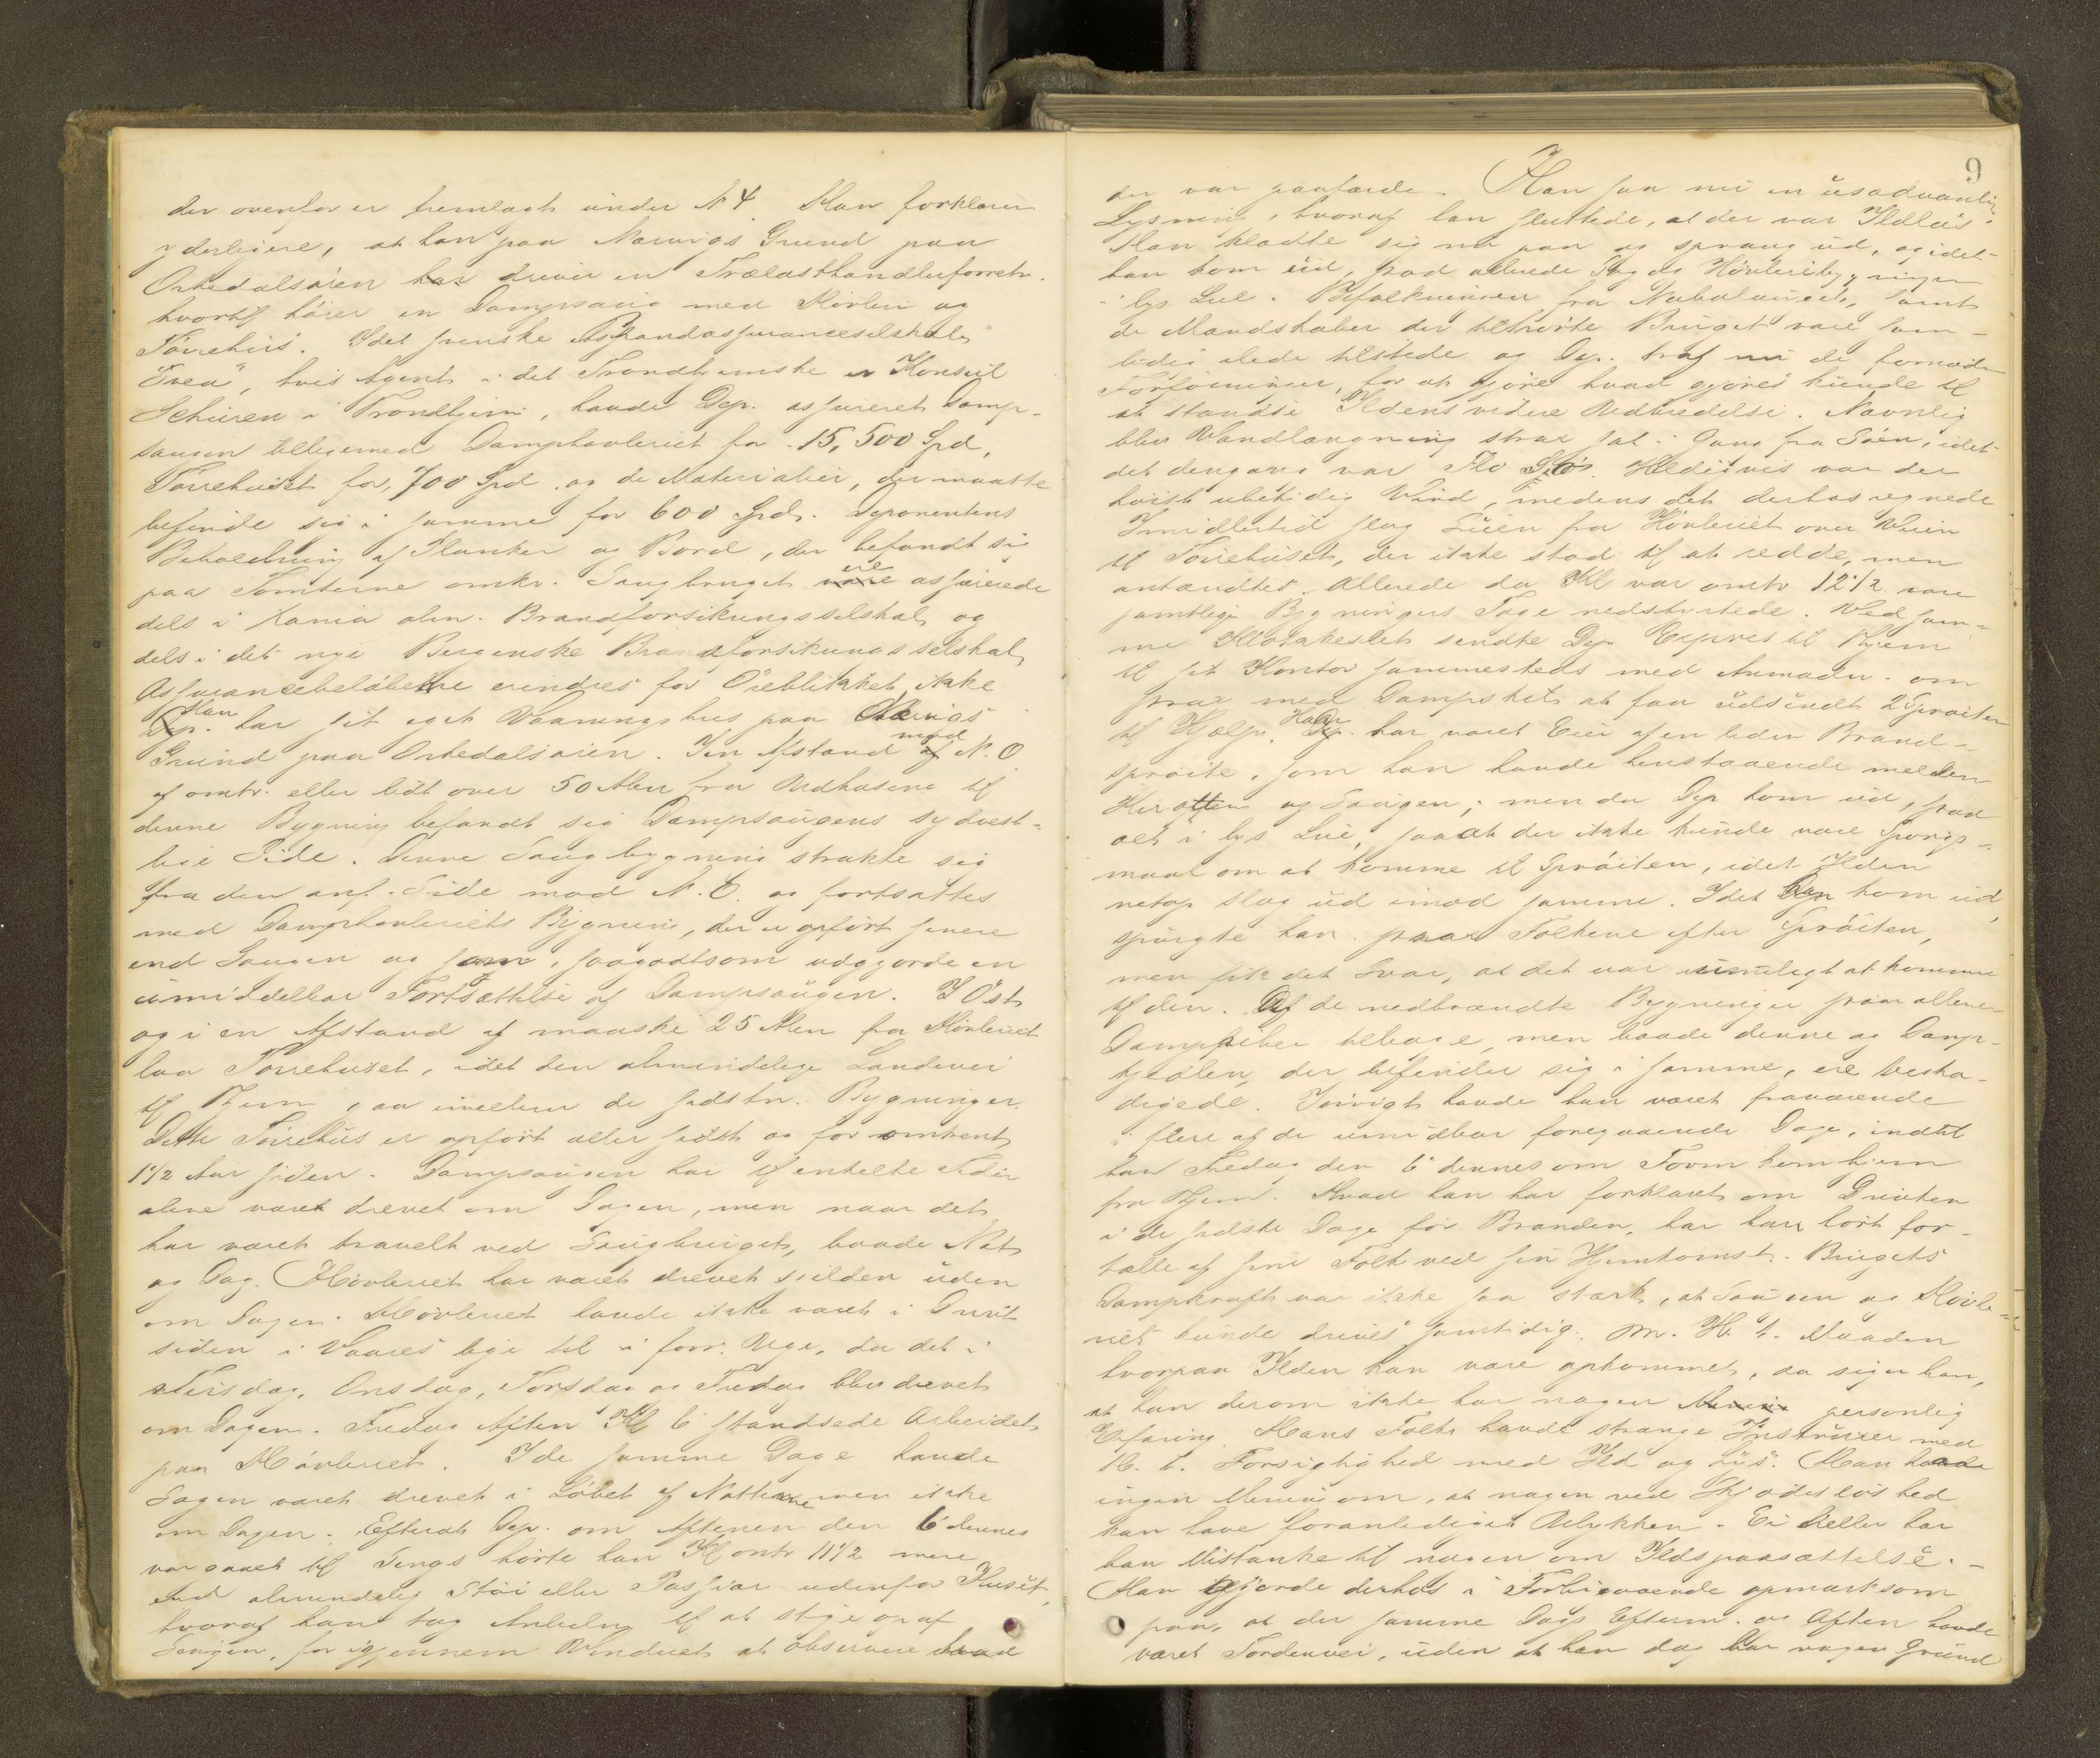 der ovenfor er fremlagt under N 4. Han forklarer
yderligere, at han paa Narvigs Grund paa
Orkedalsören har driver en Trælasthandlerforretn.
hvortil hörer en Dampsaug med Hövleri og
Törrehus. I det svenske Brandassuranceselskab
"Svea", hvis Agent i det Trondhjemske er Konsul
Schüren i Trondhjem, havde Dep. assureret Damp-
saugen tilligemed Damphövleriet for 15,500 Spd,
Törrehuset for 700 Spd og de Materialier, der maatte
befinde sig i samme for 600 Spd. Deponentens
Beholdning af Planker og Bord, der befandt sig
paa Tomterne omkr. Saugbruget vare ere assurerede
dels i alm. Brandforsikringsselskab og
dels i det nye Bergenske Brandforsikringsselskab
Assurancebelöbene erindres for Öieblikket ikke
Dep. Han har sit eget Vaaningshus paa Narvigs
Grund paa Orkedalsören. I en Afstand af mod N. O
af omtr. eller lidt over 50 Alen fra Udhusene til
denne Bygning befandt sig Dampsaugens sydvest-
lige Side. Denne Saugbygning strakte sig
fra den anf. Side mod N. O. og fortsattes
med Damphövleriets Bygning, der er opfört senere
end Saugen og som, saagodtsom udgjorde en
umiddelbar Fortsættelse af Dampsaugen. I Öst
og i en Afstand af maaske 25 Alen fra Hövleriet
laa Törrehuset, idet den almindelige Landevei
til Thjem gaar imellem de sidstn. Bygninger.
Dette Törrehus er opfört aller sidst og for omtrent
1 1/2 Aar siden. Dampsaugen har til enkelte Tider
alene været drevet om Dagen, men naar det
har været travelt ved Saugbruget, baade Nat
og Dag. Hövleriet har været drevet sjelden uden
om Dagen. Hövleriet havde ikke været i Drift
siden i Vaares lige til i forr. Uge, da det i
Tirsdag, Onsdag, Torsdag og Fredag blev drevet
om Dagen. Fredag Aften Kl 6 standsede Arbeidet
paa Hövleriet. I de samme Dage havde
Sagen været drevet i Löbet af Nætterne men ikke
om Dagen. Efterat Dep. om Aftenen den 6 dennes
var gaaet til Sengs hörte han Kl omtr 11 1/2 mere
end almindelig Stöi eller Passiar udenfor Huset,
hvoraf han tog Anledn. til at stige op af
Sengen, for igjennem Vinduet at observere hvad
9
der var paafærde. Han saa nu en usædvanlig
Lysning, hvoraf han sluttede, at der var Ildlös.
Han klædte sig nu paa og sprang ud, og idet
han kom üd, stod allerede Sag og Hövleribygningen
i lys Lue. Befolkningen fra Nabolauget, samt
de Mandskaber der tilhörte Bruget vare sam-
tidig ilede tilstede og Dep. traf nu de fornödn
Forföininger, for at gjöre hvad gjöres kunde til
at standse Ildens videre Udbredelse. Navnlig
blev Vandlangning strax sat i Gang fra Söen, idet
det dengang var Flo Sjö. Heldigvis var der
höist ubetydelig Vind, medens det derhos regnede
Imidlertid slog Luen fra Hövleriet over Veien
til Törrehuset, der ikke stod til at redde, men
antændtes. Allerede da Kl var omtr 12 1/2 vare
samtlige Bygningers Tage nedstyrtede. Ved sam-
me Klokkeslet sendte Dep Expres til Thjem
til sit Kontor sammesteds med Anmodn. om
strax med Dampskib at faa udsendt 2 Sproiter
til Hjælp. Dep. Han har været Eier af en liden Brand-
spröite, som han havde henstaaende mellem
og Saugen; men da Dep kom ud, stod
alt i lys Lue, saaat der ikke kunde være Spörgs-
maal om at komme til Spröiten, idet Ilden
netop slog ud imod samme. Idet Dep kom ud,
spurgte han paa Folkene efter Spröiten,
men fik det Svar, at det var umuligt at komme
til den. Af de nedbrændte Bygninger staar allene
Damppiben tilbage, men baade denne og Damp-
kjedlen, der befinder sig i samme, ere beska-
digede. Iövrigt havde han været fraværende
i flere af de umidbar foregaaende Dage, indtil
han Fredag den 6 dennes om Form kom hjem
fra Thjem. Hvad han har forklaret om Driften
i de sidste Dage för Branden, har han hört for-
tælle af sine Folk ved sin Hjemkomst. Brugets
Dampkraft var ikke saa stærk, at Saugen og Hövle-
riet kunde drives samtidig. M. H. t. Maaden
hvorpaa Ilden kan være opkommet, da siger han,
at han derom ikke har nogen Mening personlig
Erfaring. Hans Folk havde strænge Instruxer med
H. t. Forsigtighed med Ild og Lys. Han havde
ingen Mening om, at nogen ved Skjödeslöshed
kan have foranlediget Ulykken. Ei heller har
han Mistanke til nogen om Ildspaasættelse. -
Han gjorde derhos i Forbigaaende opmærksom
paa, at der samme Dags Efterm. og Aften havde
været Tordenvei, uden at han dog har nogen Grund